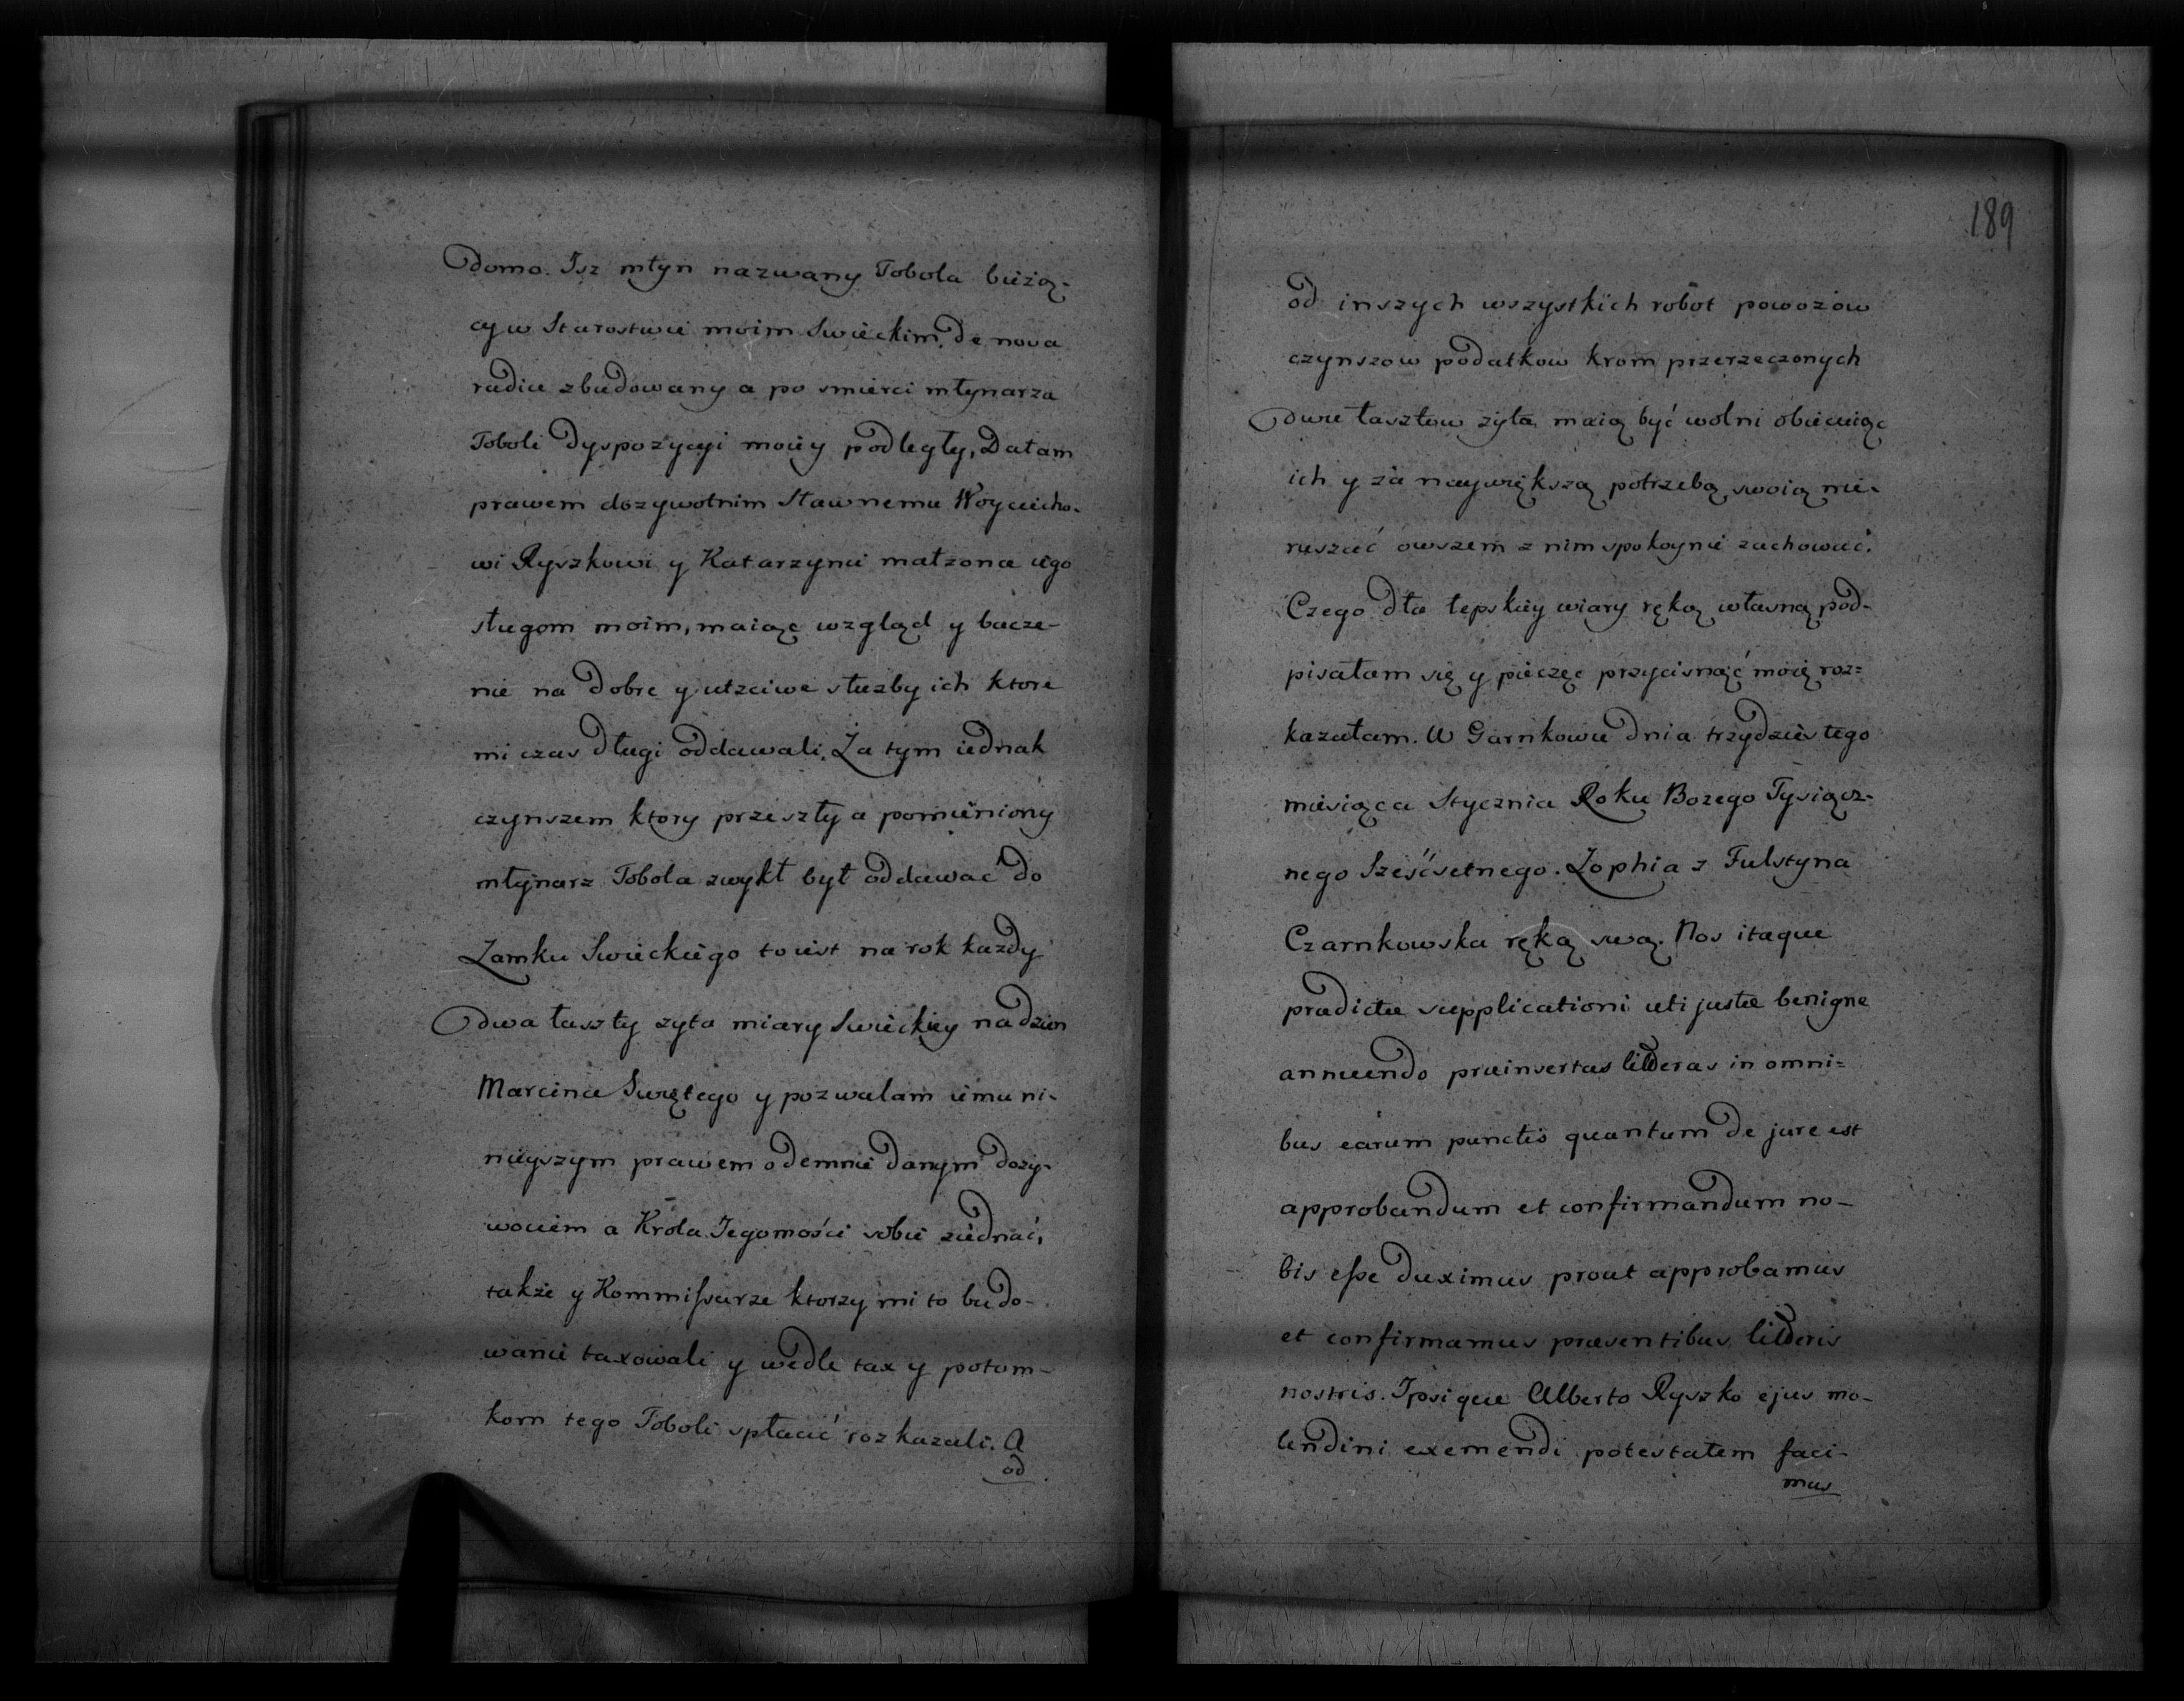 domo. Isz młyn nazwany Tobola bieżą-
cy w Starostwie moim Swieckim, de nova
radice zbudowany a po smierci młynarza
Toboli dyspozycyi moiey podległy, Dałam
prawem dozywotnim Sławnemu Woyciecho-
wi Ryszkowi y Katarzynie małzonce iego
sługom moim, maiąc wzgląd y bacze-
nie na dobre y utzciwe służby ich ktore
mi czas długi oddawali. Za tym iednak
czynszem ktory przeszły a pomieniony
młynarz Tobola zwykł był oddawać do
Zamku Swieckiego to iest na rok kazdy
dwa łaszty zyta miary Swieckiey na dzien
Marcina Swiętego y pozwalam iemu ni-
nieyszym prawem odemnie danym dozy-
wociem a Króla Jegomości sobie ziednać,
takze y Kommissarze ktorzy mi to budo-
wanie taxowali y wedle tax y potom-
kom tego Toboli spłacić rozkazali. A
od
189
od inszych wszystkich robot powozow
czynszow podatkow krom przerzeczonych
dwu łasztow zyta maią być wolni obiecuiąc
ich y za naywiększą potrzebą swoią nie-
ruszać owszem z nim spokoynie zachować.
Czego dla lepskiey wiary ręką własną pod-
pisałam się y pieczęc przycisnąć moię roz=
kazałam. W Garnkowie dnia trzydziestego
miesiąca Stycznia Roku Bozego Tysiącz-
nego Sześćsetnego. Zophia z Fulstyna
Czarnkowska ręką swą. Nos itaque
prædictæ supplicationi uti justæ benigne
annuendo præinsertas litteras in omni=
bus earum punctis quantum de jure est
approbandum et confirmandum no-
bis esse duximus prout approbamus
et confirmamus præsentibus litteris
nostris. Ipsique Alberto Ryszko ejus mo-
lendini exemendi potestatem faci-
mus